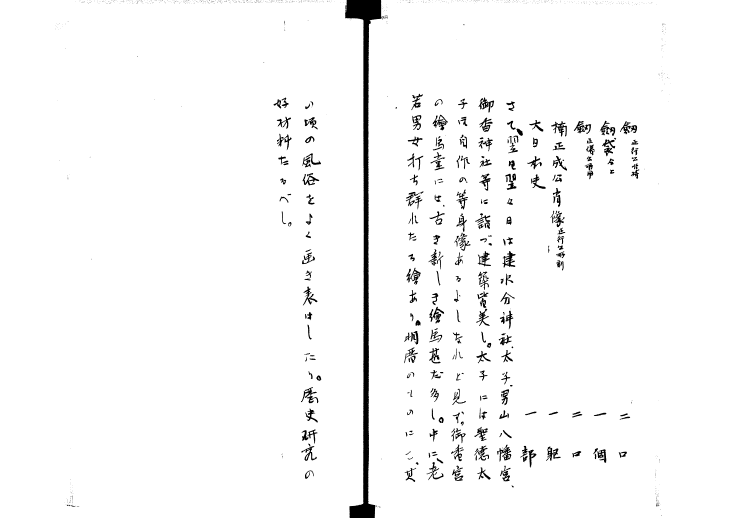 劔 正行公所持 二口
劔袋々と 一個
劔 正儀公所用 二口
楠正成公肖像 正行公所刻 一躯
大日本史 一部
さて、翌と翌々日は建水分神社、太子、男山八幡宮、
御香神社等に詣づ、建築皆美し。太子には聖徳太
子は自作の等身像あるよしなれど見ず。御香宮
の繪馬堂には、古き新しき繪馬甚だ多し。中に、老
若男女打ち群れたる繪あり。明暦のものにて、其
い頃の風俗をよく画き表はしたり。歴史研究の
好材料たるべし。